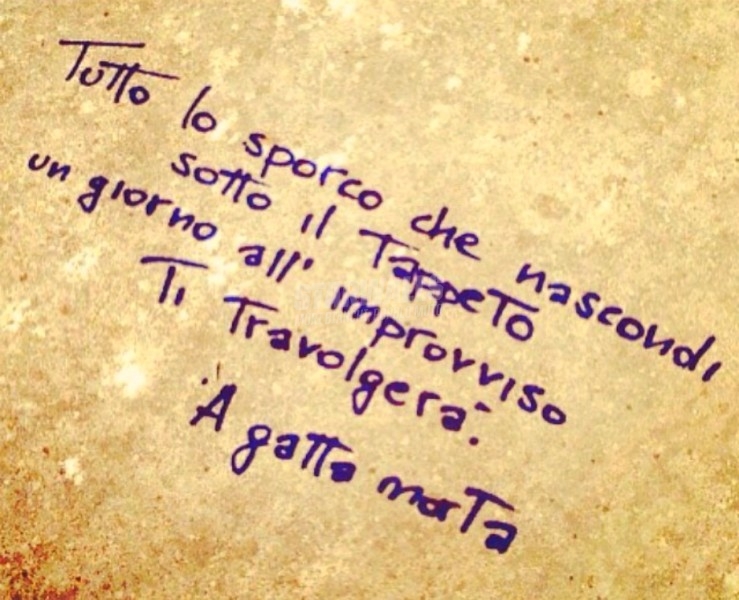 Tutto lo sporco che nascondi
sotto il Tappeto
un giorno all' improvviso
Ti Travolgerà.
'A gatta morta